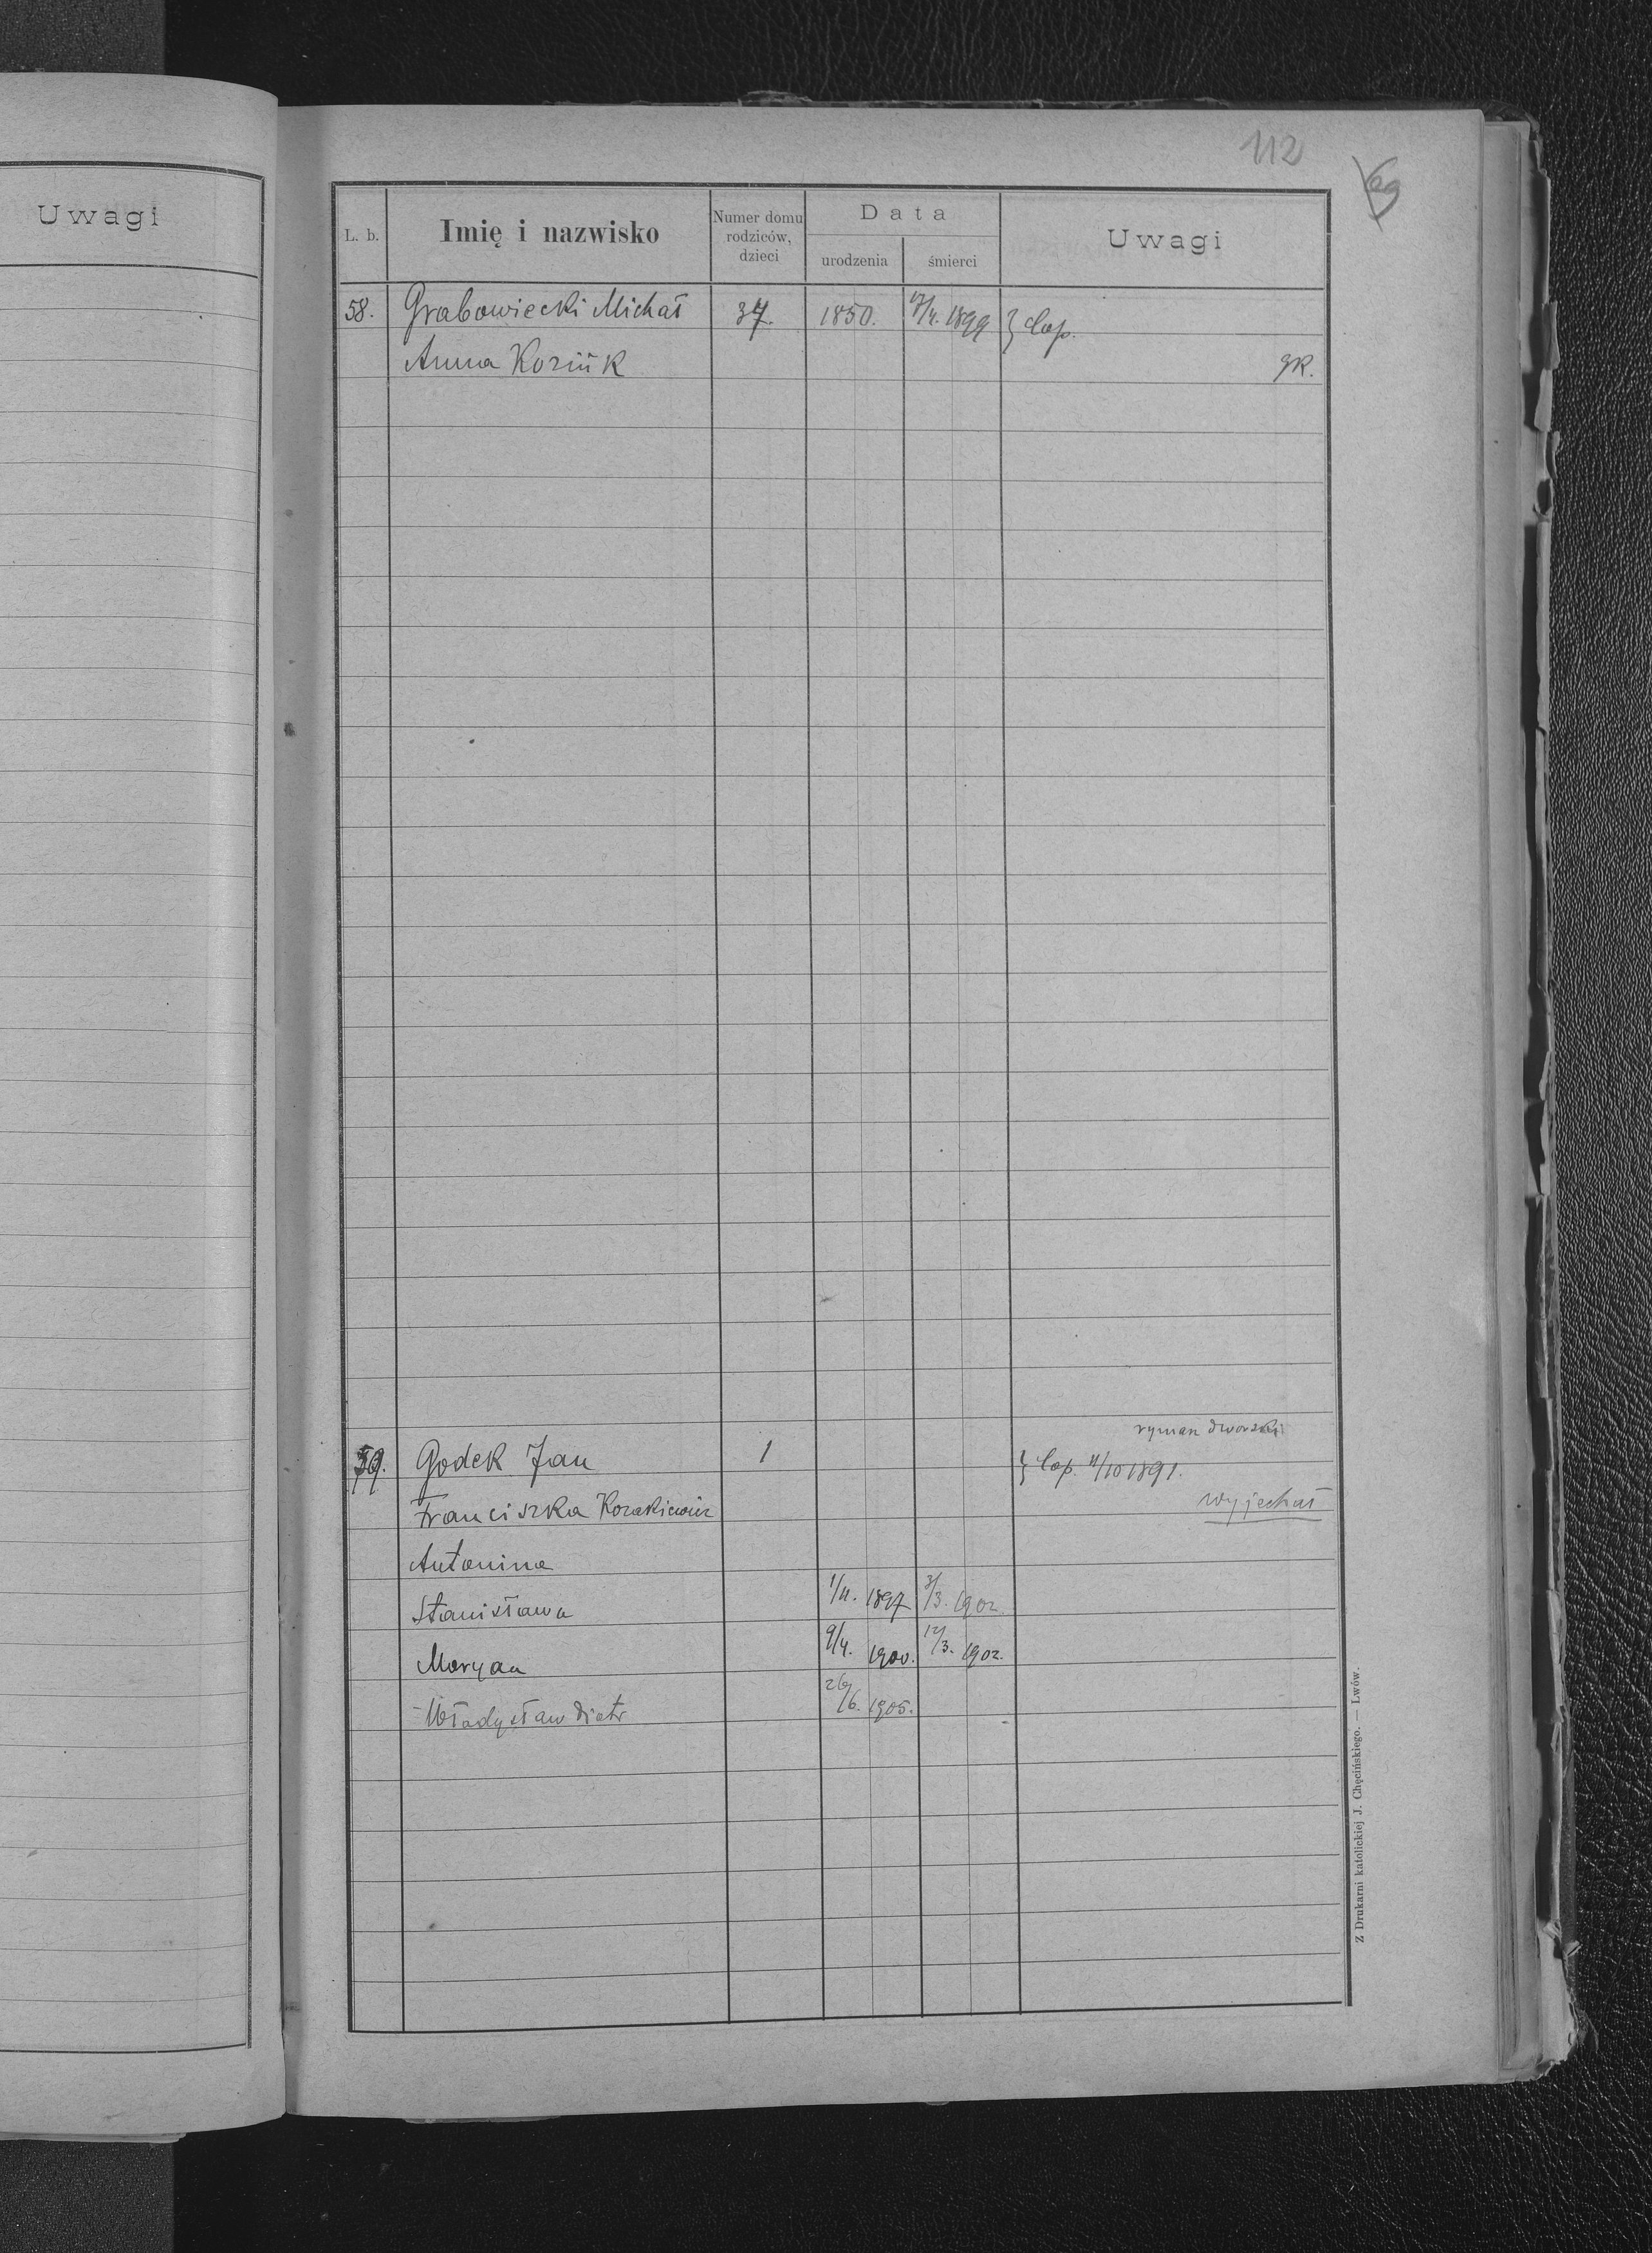 Uwagi
112
69
L. b. Imię i nazwisko Numer domu rodziców, dzieci Data urodzenia śmierci Uwagi
58. Grabowiecki Michał 37. 1850. 17/4. 1899 } Cop.
Anna Koziuk gk.
dworski
59. Godek Jan 1 } Cop. 11/10 1891.
Franciszka Kozakiewicz wyjechał
Antonina
Stanisława 1/11. 1897 3/3. 1902.
Maryan 9/4. 1900. 12/3. 1902.
Władysław Piotr 26/6. 1905.
Z Drukarni katolickiej J. Chęcińskiego. — Lwów.